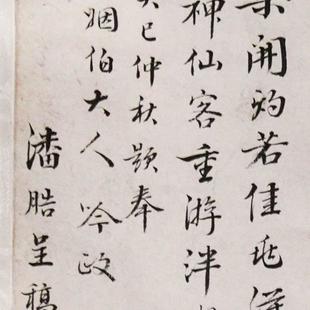 開灼若佳兆
神仙客重游泮
巳仲秋题奉
姻伯大人吟政
潘皓呈稿